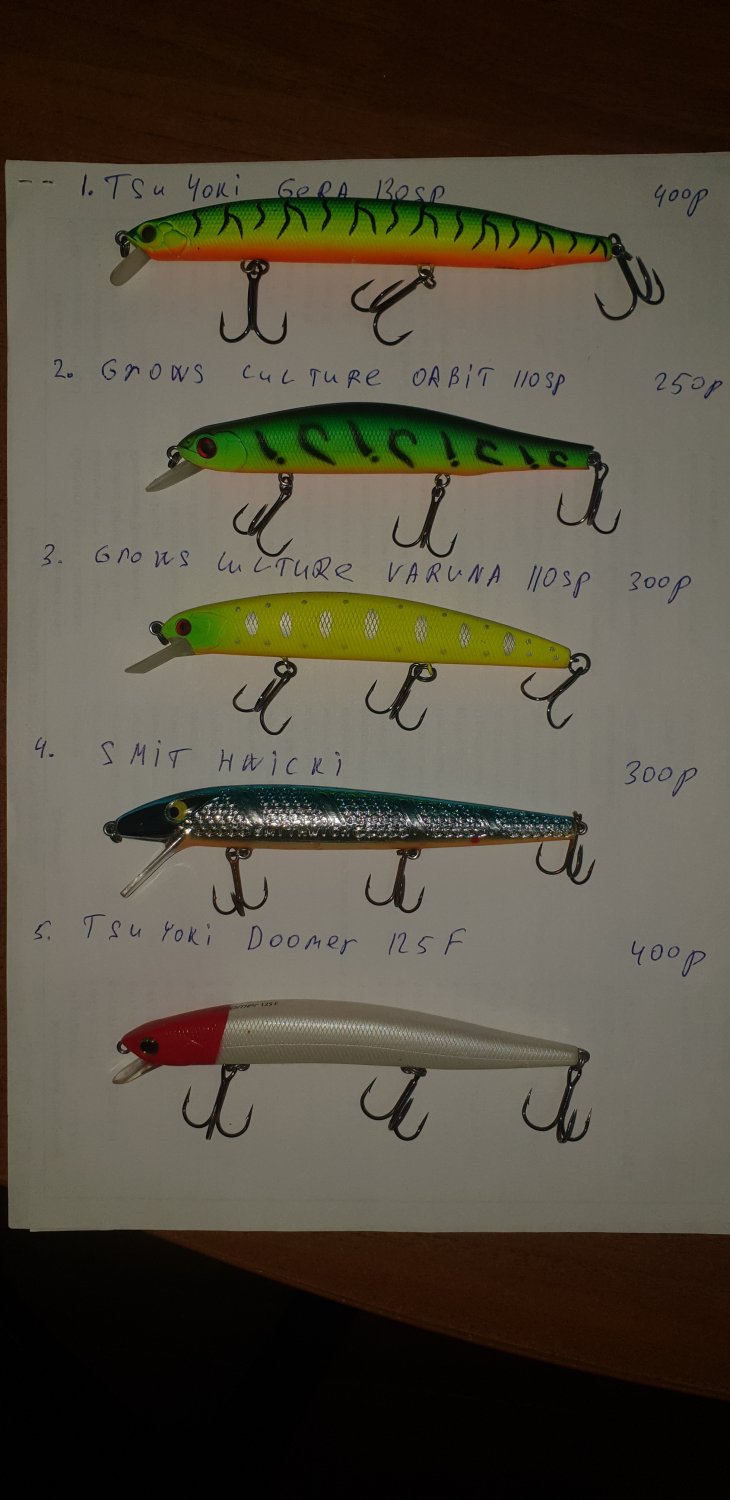 1. TSU YOKI GERA 130SP 400р
2. GROWS CULTURE ORBIT 110SP 250р
3. GROWS CULTURE VARUNA 110SP 300р
4. SMIT HAICKI 300р
5. TSU YOKI Doomer 125F 400р
125F